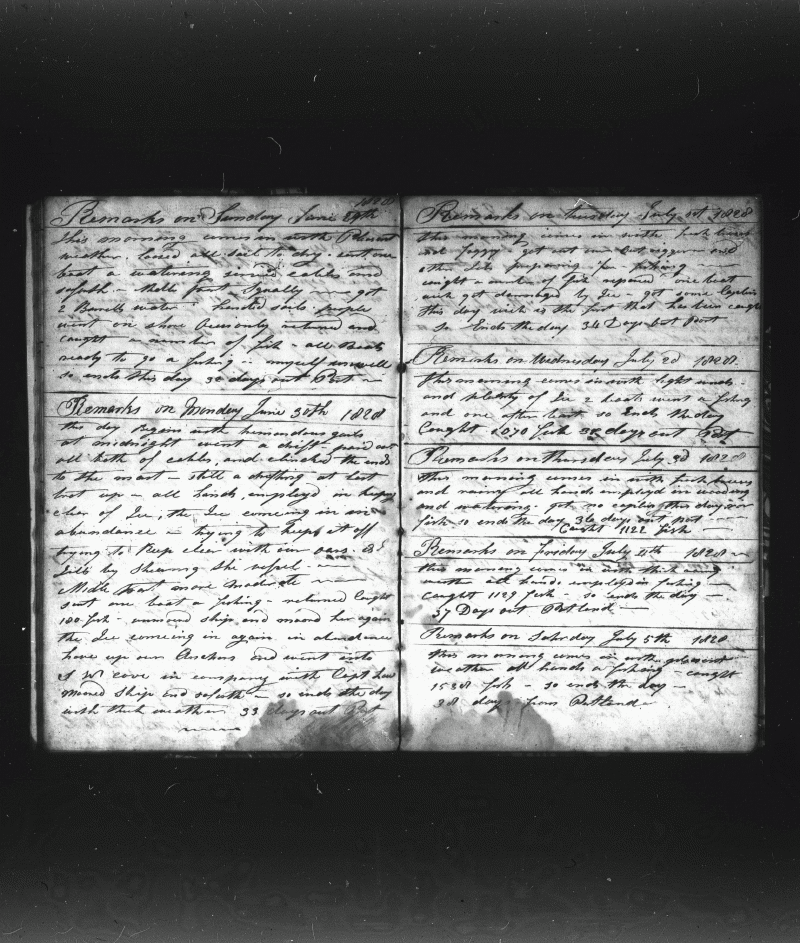 1828
Remarks on Sunday June 29th
this morning comes in with Pleasant
weather. loosed all sail to dry. sent one
boat a watering
2 Barells water handed sails people
went on shore returned and
caught a number of fish - all Boats
ready to go a fishing - myself unwell
so ends this day 32 days out Port
Remarks on Monday June 30th 1828
the day Begins with tremendous gails
at midnight went a drift paid out
all both of cables, and clinched the ends
to the mast - still a drifting at last
brot up - all hands employed in keeping
clear of Ice, the Ice comeing in in
abundance - trying to keep it off
trying to Keep clear with our oars.
Middle Part more Moderate
sent one boat a fishing - returned Caught
100 fish - unmoord ship and moord her again
the Ice comeing in again in abundance
hove up our Anchors and went into
cove in company with Capt
moored ship and - so ends the day
with thick weather 33 days out Port
Remarks on Tuesday July 1st 1828
this morning comes in with fresh breeses
and foggy - got out our and
other preparing for fishing
caught a number of fish repaired one boat
wich got damaged by Ice - got some Caplin
this day wich is the first that has been caught
so Ends the day 34 Days out Port
Remarks on Wednesday July 2d 1828
this morning comes in with light winds
and plenty of Ice 2 boats went a fishing
and one after bait so Ends the day
Caught 1070 fish 35 days out Port
Remarks on thursday July 3d 1828
this morning comes in with fresh breeses
and rainy all hands employed in wooding
and watering. got no caplin this day nor
fish so ends the day 36 days out Port
Caught 1122 fish
Remarks on friday July 4th 1828
this morning comes in with thick
weather all hands employed in fishing
caught 1129 fish - so ends the day
37 Days out Portland
Remarks on Saturday July 5th 1828
this morning comes in with pleasant
weather all hands a fishing - caught
1538 fish - so ends the day -
38 days from Portland